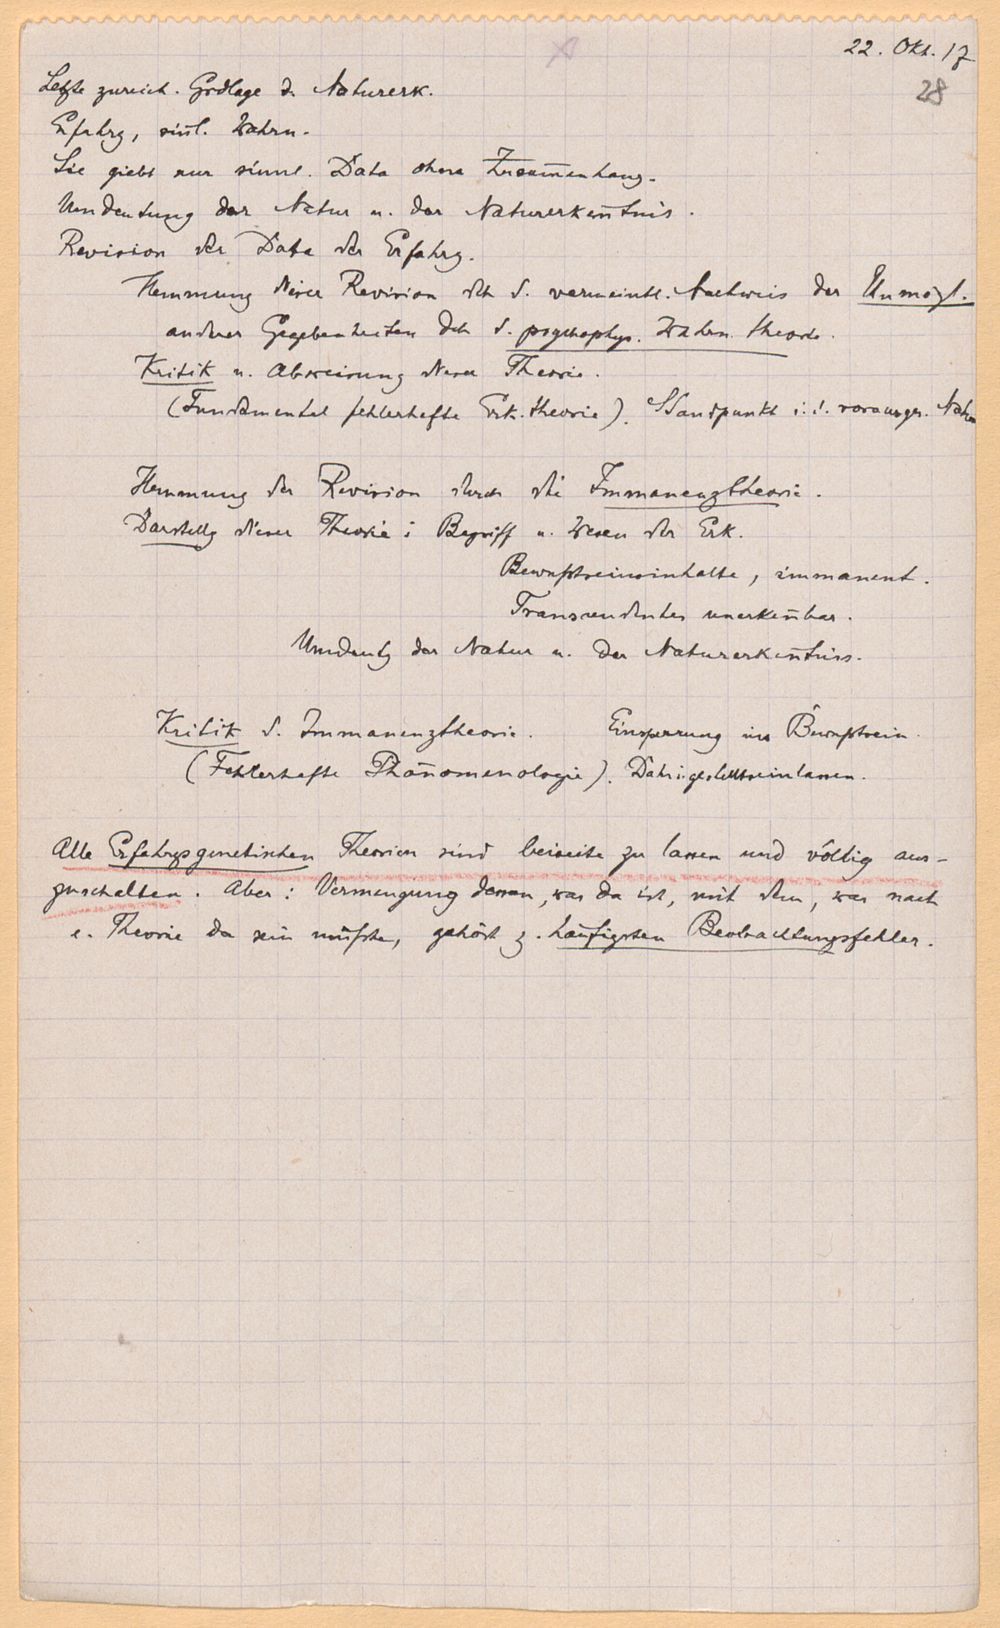 22. Okt. 17.
28
Letzte zureich. Grdlage d. Naturerk.
Erfahrg, sinnl. Wahrn.
Sie giebt nur sinnl. Data ohne Zusam̅enhang.
Umdeutung der Natur u. der Naturerken̅tnis.
Revision der Data der Erfahrg.
Hemmung dieser Revision dch d. vermeintl. Nachweis der Unmögl.
anderer Gegebenheiten dch d. psychophys. Wahrn. theorie.
Kritik u. Abweisung dieser Theorie.
(Fundamental fehlerhafte Erk.theorie). Standpunkt i. d. vorausges. Natur
Hemmung der Revision durch die Immanenztheorie.
Darstellg dieser Theorie: Begriff u. Wesen der Erk.
Bewußtseinsinhalte, immanent.
Transcendentes unerken̅bar.
Umdeutg der Natur u. der Naturerken̅tniss.
Kritik d. Immanenztheorie. Einsperrung ins Bewußtsein.
(Fehlerhafte Phänomenologie). Dahingestelltseinlassen.
Alle Erfahrgsgenetischen Theorien sind beiseite zu lassen und völlig aus-
zuschalten. Aber: Vermengung dessen, was da ist, mit dem, was nach
e. Theorie da sein müßte, gehört z. häufigsten Beobachtungsfehler.